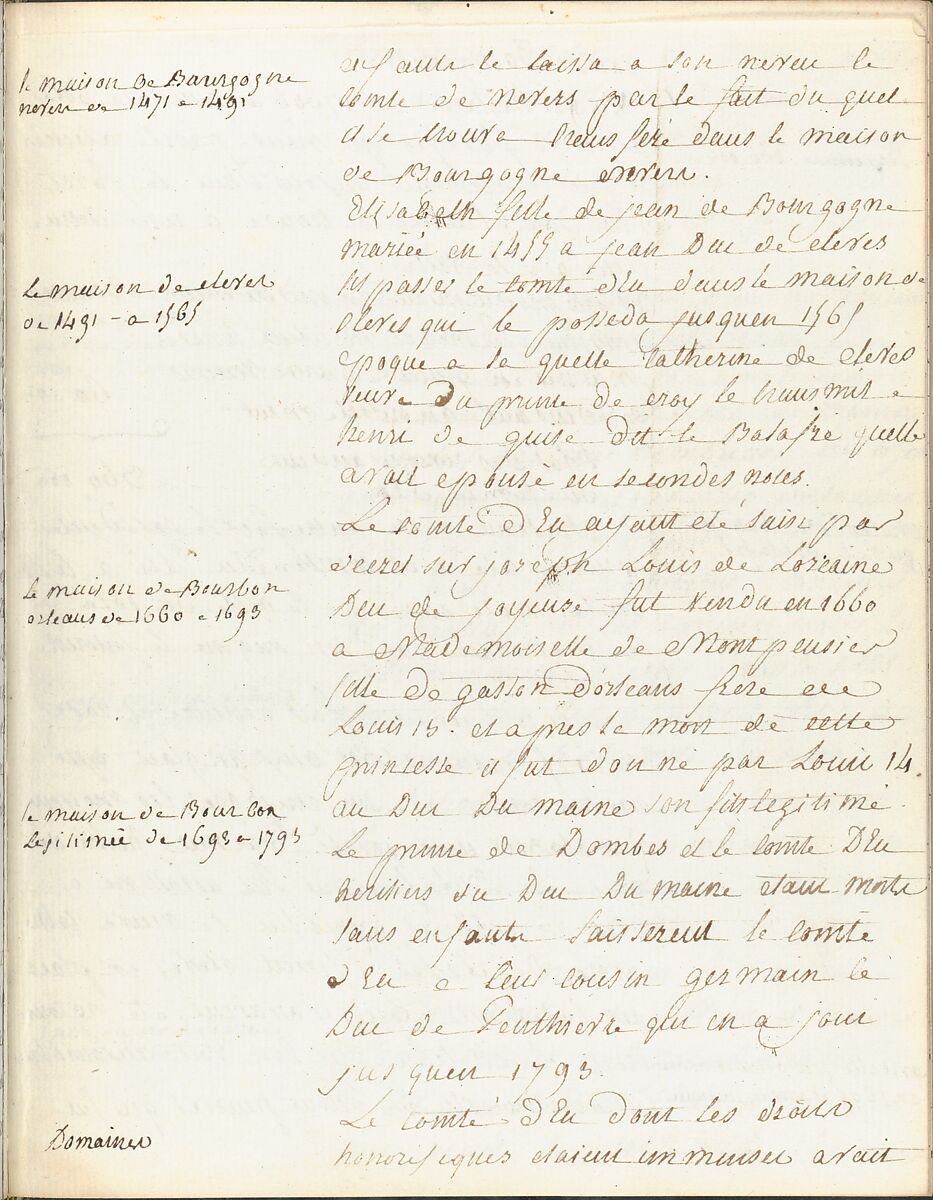 la maison de Bourgogne
nevers de 1471 a 1491
enfants le laissa a son neveu le
Comte de nevers par le fait du quel
il se trouva transferé dans la maison
de Bourgogne nevers.
Elisabeth fille de jean de Bourgogne
mariée en 1455 a jean Duc de cleves
La maison de cleves
de 1491 - a 1565
fit passer le comté d'Eu dans la maison de
cleves qui le posseda jusquen 1565
epoque a la quelle Catherine de cleves
veuve du prince de croy le transmit a
henri de guise dit le Balafré quelle
avait epousé en secondes noces.
Le comté d'Eu ayant eté saisi par
decret sur joseph Louis de Lorraine
la maison de Bourbon
orleans de 1660 a 1693
Duc de joyeuse fut vendu en 1660
a Mademoiselle de Montpensier
fille de gaston d'orleans frere de
Louis 13. et apres la mort de cette
princesse il fut donné par Louis 14
la maison de Bourbon
Legitimée de 1693 a 1793
au Duc Du maine son fils legitimé
Le prince de Dombes et le comte D'Eu
heritiers du Duc Du maine etant morts
sans enfants laisserent le comté
d'Eu a leur cousin germain le
Duc de Penthievre qui en a joui
jusquen 1793.
Domaines
Le comté d'Eu dont les droits
honorifiques etaient immenses avait